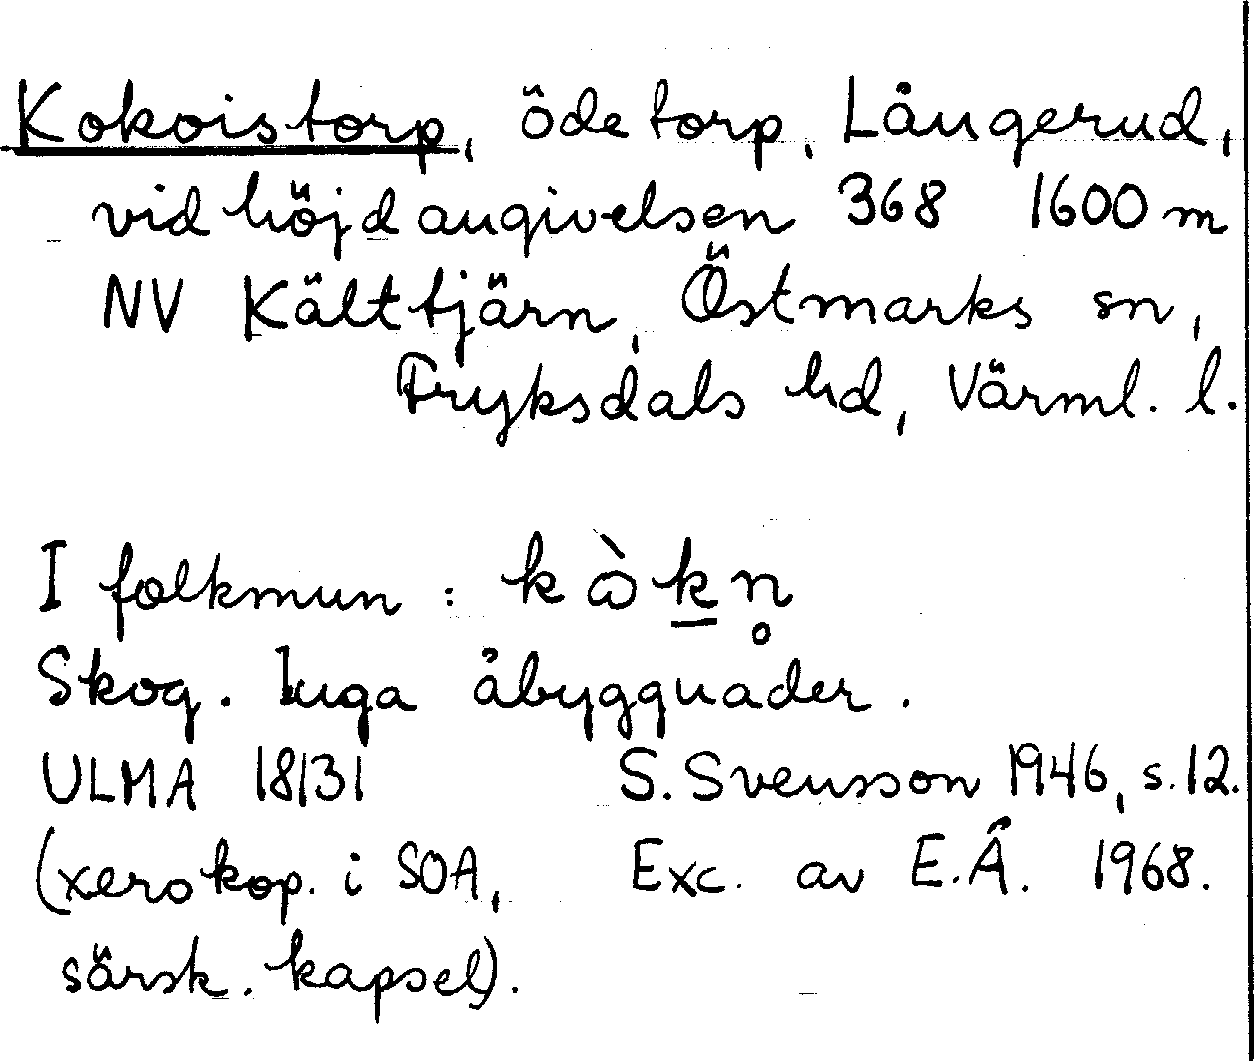 Kokoistorp, ödetorp, Långerud,
vid höjdangivelsen 368 1600 m
NV Kälttjärn, Östmarks sn,
Fryksdals hd, Värml. l.
I folkmun : kòkn̥
Skog. Inga åbyggnader.
ULMA 18131 S. Svensson 1946, s. 12.
(xerokop. i SOA, Exc. av E.Å. 1968.
särsk. kapsel).